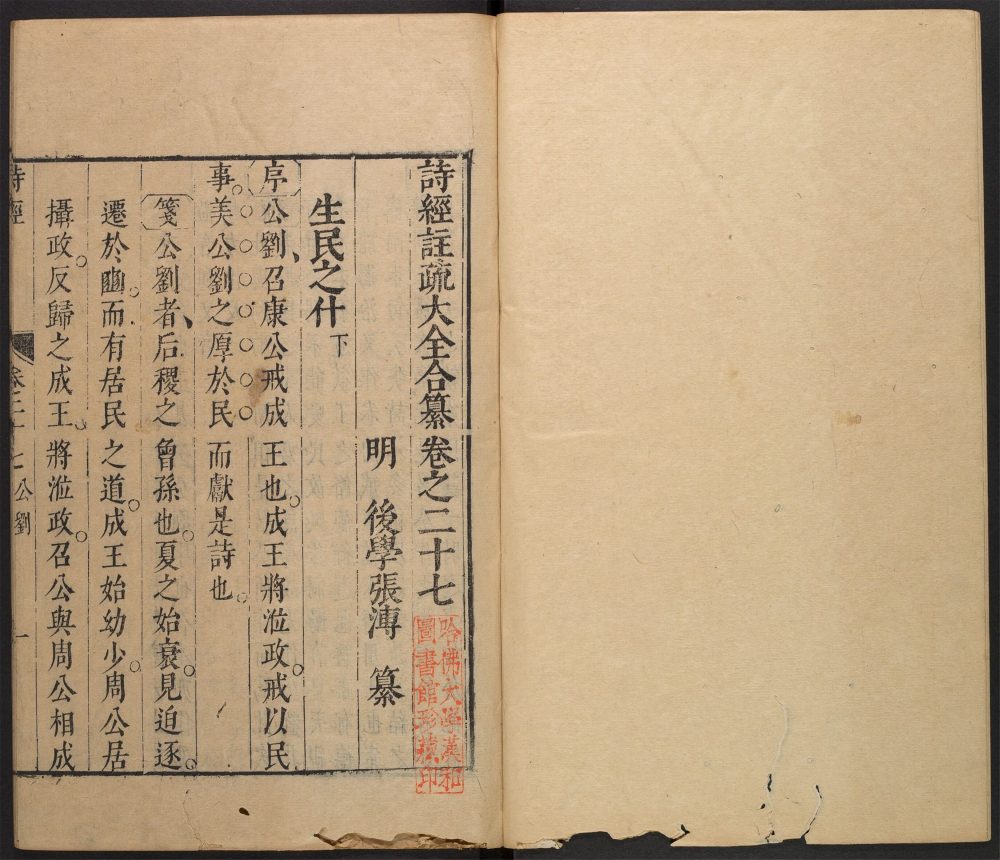 詩經註疏大全合纂卷之二十七
哈佛大學漢和
圖書館珍藏印
明 後學張溥 纂
生民之什 下
序公劉召康公戒成王也成王將涖政戒以民
事美公劉之厚於民而獻是詩也
箋公劉者后稷之曾孫也夏之始衰見迫逐
遷於豳而有居民之道成王始幼少周公居
攝政反歸之成王將涖政召公與周公相成
詩經 卷二十七公劉 一